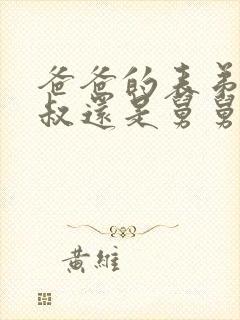 爸爸的表弟
叔還是舅舅
黃維